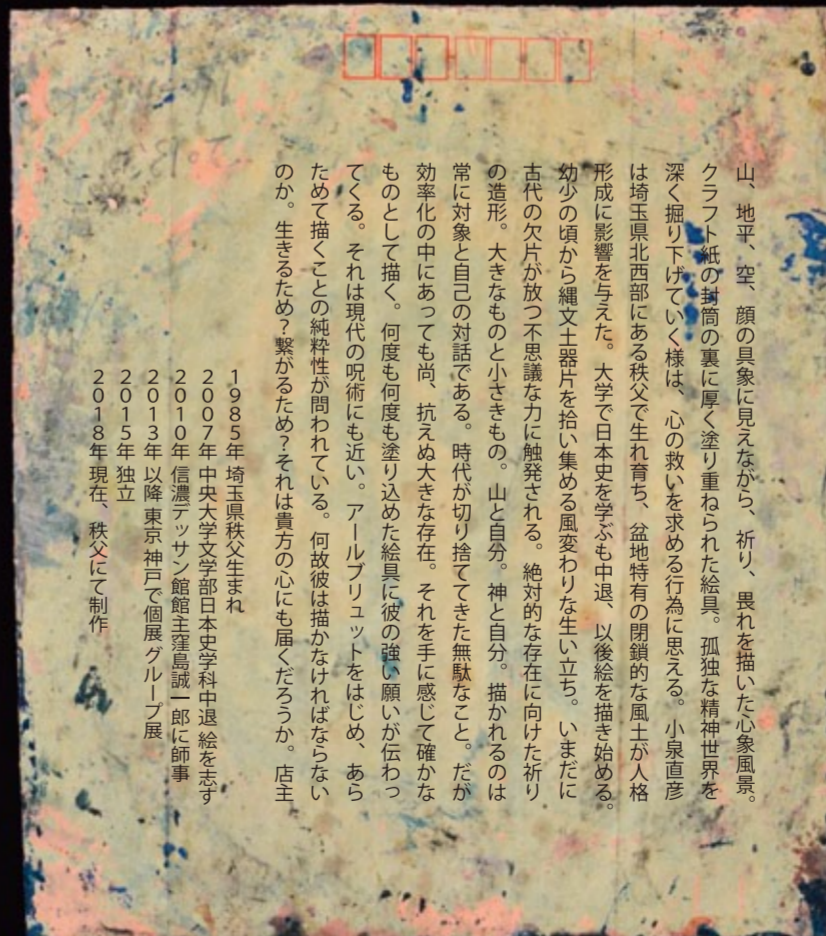 山、地平、空、顔の具象に見えながら、祈り、畏れを描いた心象風景。
クラフト紙の封筒の裏に厚く塗り重ねられた絵具。孤独な精神世界を
深く掘り下げていく様は、心の救いを求める行為に思える。小泉直彦
は埼玉県北西部にある秩父で生れ育ち、盆地特有の閉鎖的な風土が人格
形成に影響を与えた。大学で日本史を学ぶも中退、以後絵を描き始める。
幼少の頃から縄文土器片を拾い集める風変わりな生い立ち。いまだに
古代の欠片が放つ不思議な力に触発される。絶対的な存在に向けた祈り
の造形。大きなものと小さきもの。山と自分。神と自分。描かれるのは
常に対象と自己の対話である。時代が切り捨ててきた無駄なこと。だが
効率化の中にあっても尚、抗えぬ大きな存在。それを手に感じて確かな
ものとして描く。何度も何度も塗り込めた絵具に彼の強い願いが伝わっ
てくる。それは現代の呪術にも近い。アールブリュットをはじめ、あら
ためて描くことの純粋性が問われている。何故彼は描かなければならない
のか。生きるため?繋がるため?それは貴方の心にも届くだろうか。店主
1985年 埼玉県秩父生まれ
2007年 中央大学文学部日本史学科中退 絵を志す
2010年 信濃デッサン館館主窪島誠一郎に師事
2013年 以降 東京 神戸で個展 グループ展
2015年 独立
2018年 現在、秩父にて制作